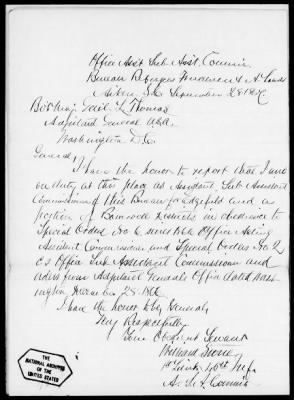 Office Asst Sub Asst Commr
Bureau Refugees Freedmen & A. Lands
Aiken S.C. September 28 1867
Bvt Maj Genl L Thomas
Adjutant General U.S.A.
Washington D.C.
General,
I have the honor to report that I am
on duty at this place as Assistant Sub Assistant
Commissioner of this Bureau for Edgefield and a
portion of Barnwell Districts in obedience to
Special Orders No 6 Office Acting
Assistant Commissioner and Special Orders No 2
Office Sub Assistant Commissioner and
orders from Adjutant Generals Office dated Wash
ington December 28. 1866
I have the honor to be General,
Very Respectfully
Your Obedient Servant
William Stone
1st Lieut 40th Inf.
A. S. A. Commr
THE
NATIONAL ARCHIVES
OF THE
UNITED STATES